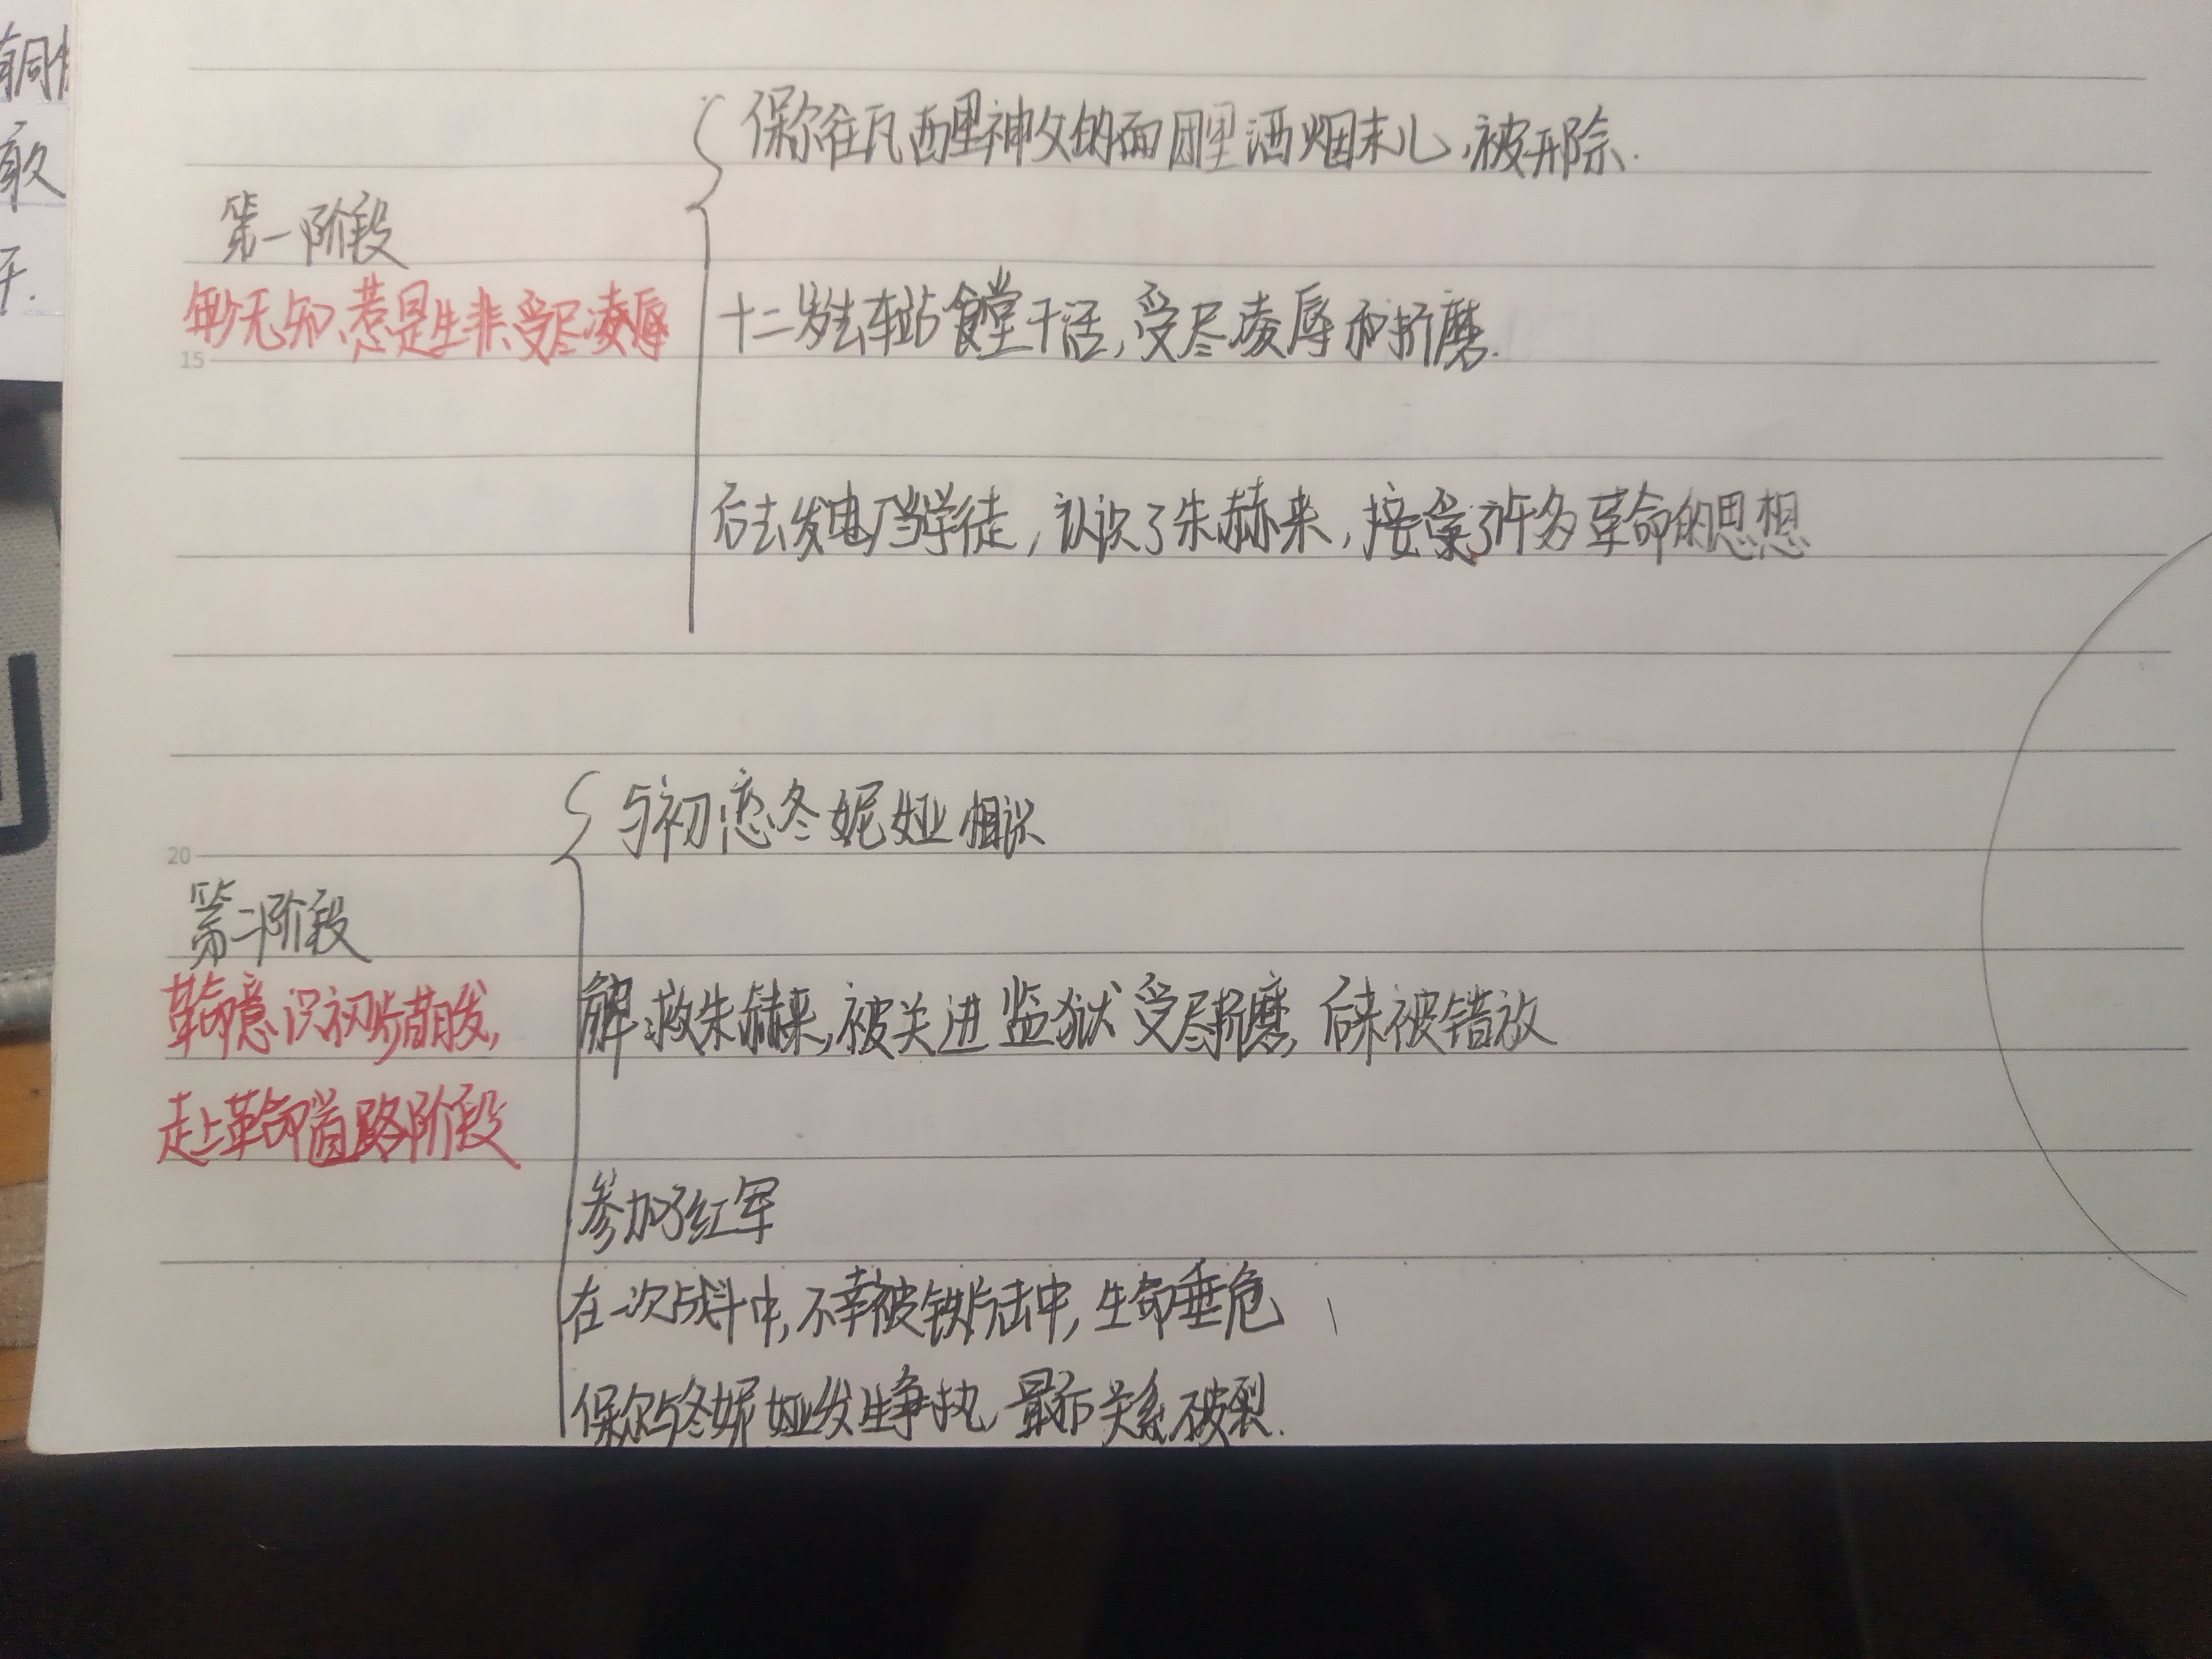 保尔往瓦西里神父的面团里洒烟末儿,被开除.
第一阶段
年少无知、惹是生非、受尽凌辱
十二岁去车站食堂干活,受尽凌辱和折磨.
15
后去发电厂当学徒,认识了朱赫来,接受了许多革命的思想
与初恋冬妮娅相识
20
第二阶段
革命意识初步萌发,
解救朱赫来,被关进监狱受尽折磨,后来被错放
走上革命道路阶段
参加了红军
在一次战斗中,不幸被铁片击中,生命垂危
保尔与冬妮娅发生争执,最后关系破裂.
敢